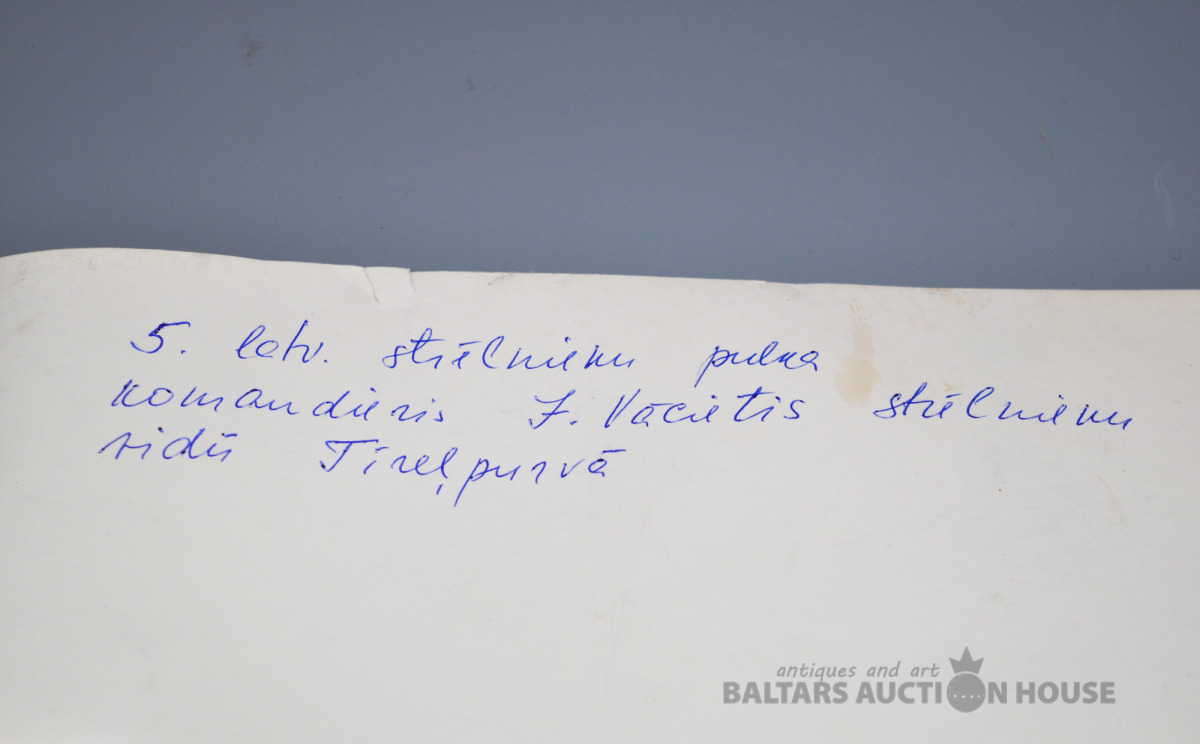 5. latv. strēlnieku pulka
komandieris J. Vācietis strēlnieku
vidū Tīreļpurvā
antiques and art
BALTARS AUCTION HOUSE